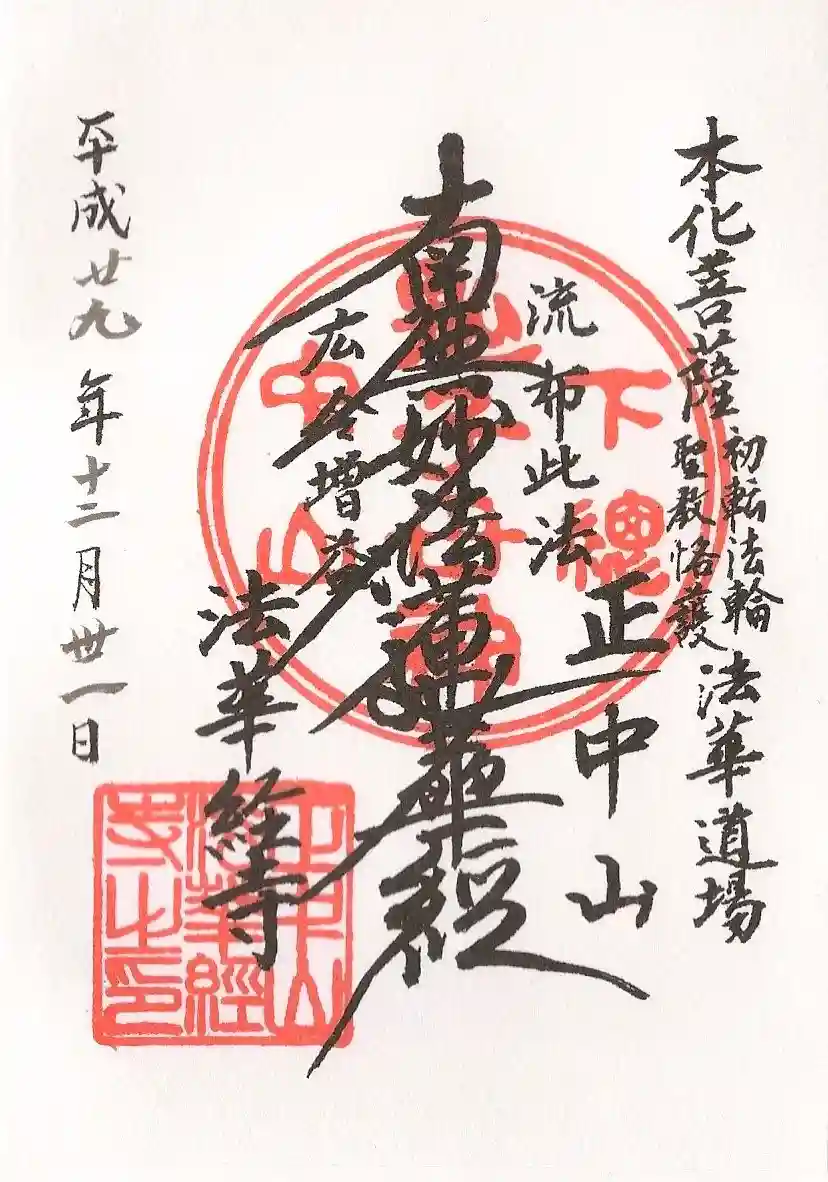 本化菩薩
初転法輪
聖教恪護
法華道場
正中山
流布此法
南無妙法蓮華経
広令増益
法華経寺
平成廿九年十二月丗一日
下總
中山
正中山
法華經
寺之印